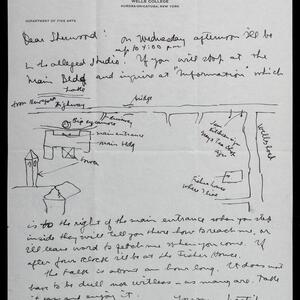 WELLS COLLEGE
AURORA-ON-CAYUGA, NEW YORK
DEPARTMENT OF FINE ARTS
Dear Sherwood: On Wednesday afternoon I'll be
up to 4:00 pm
in the alleged studio. If you will stop at the
Main Bldg and inquire at "Information" which
Lake
from New York
Highway
bridge
Driveway
Big sycamore
main entrance
main bldg
tower
Tea Shop
Wells Road
Fisher House
where I live
is to the right of the main entrance when you step
inside they will tell you there how to reach me, or
I'll leave word to fetch me when you come. If
after four o'clock I'll be at the Fisher House.
The talk is about an hour long. It does not
have to be dull and witless - as many are. Take
it easy and enjoy it.